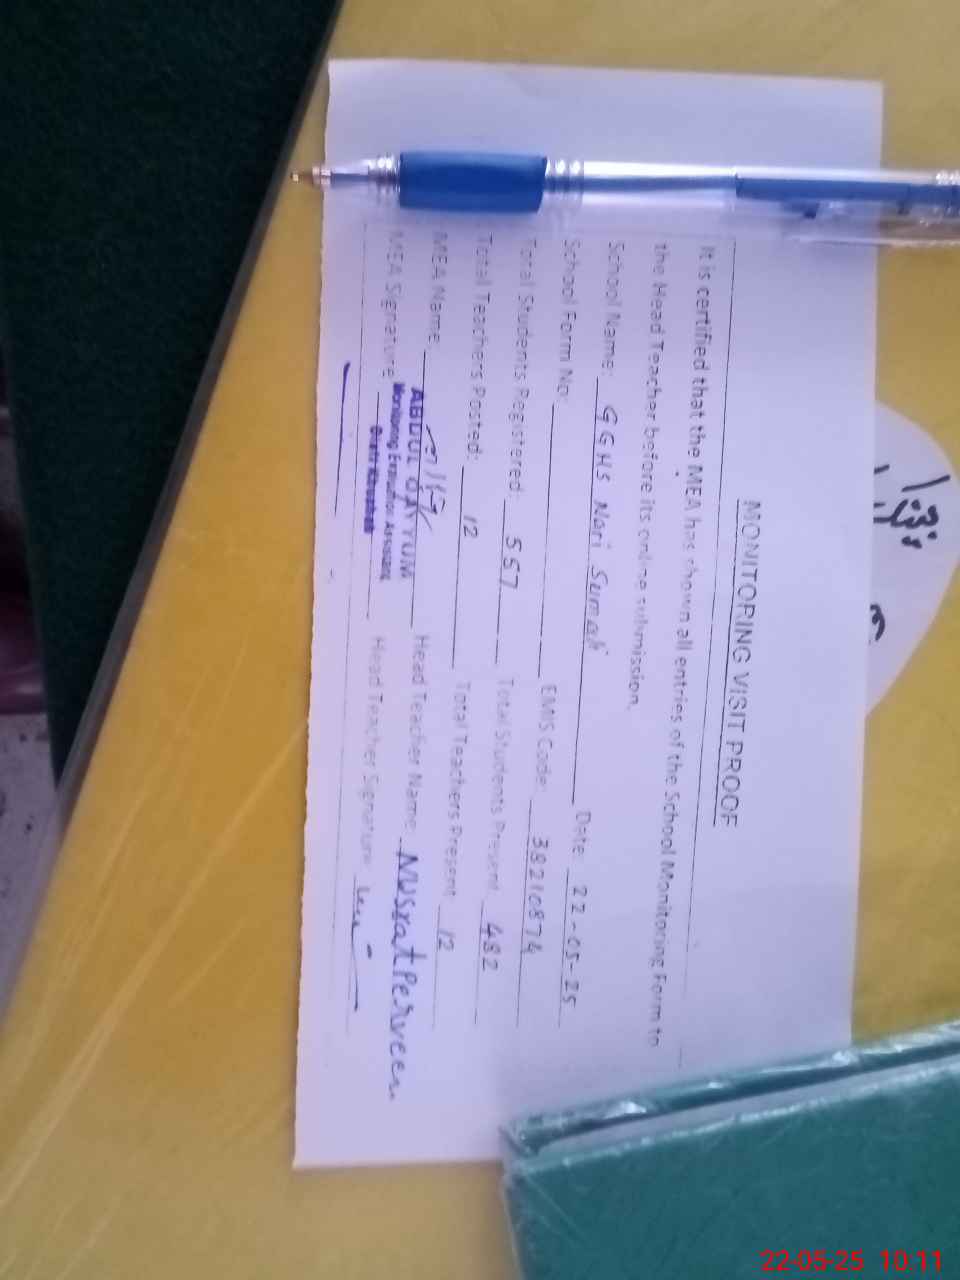 MONITORING VISIT PROOF
It is certified that the MEA has shown all entries of the School Monitoring Form to
the Head Teacher before its online submission.
School Name: GGHS Nari Sumali Date: 22-05-25
School Form No: EMIS Code: 38210874
Total Students Registered: 557 Total Students Present 482
Total Teachers Posted: 12 Total Teachers Present 12
MEA Name ABDUL QAYYUM Head Teacher Name: Nusrat Perveen
Monitoring Evaluation Assistant
MEA Signature Head Teacher Signature
22-05-25 10:11